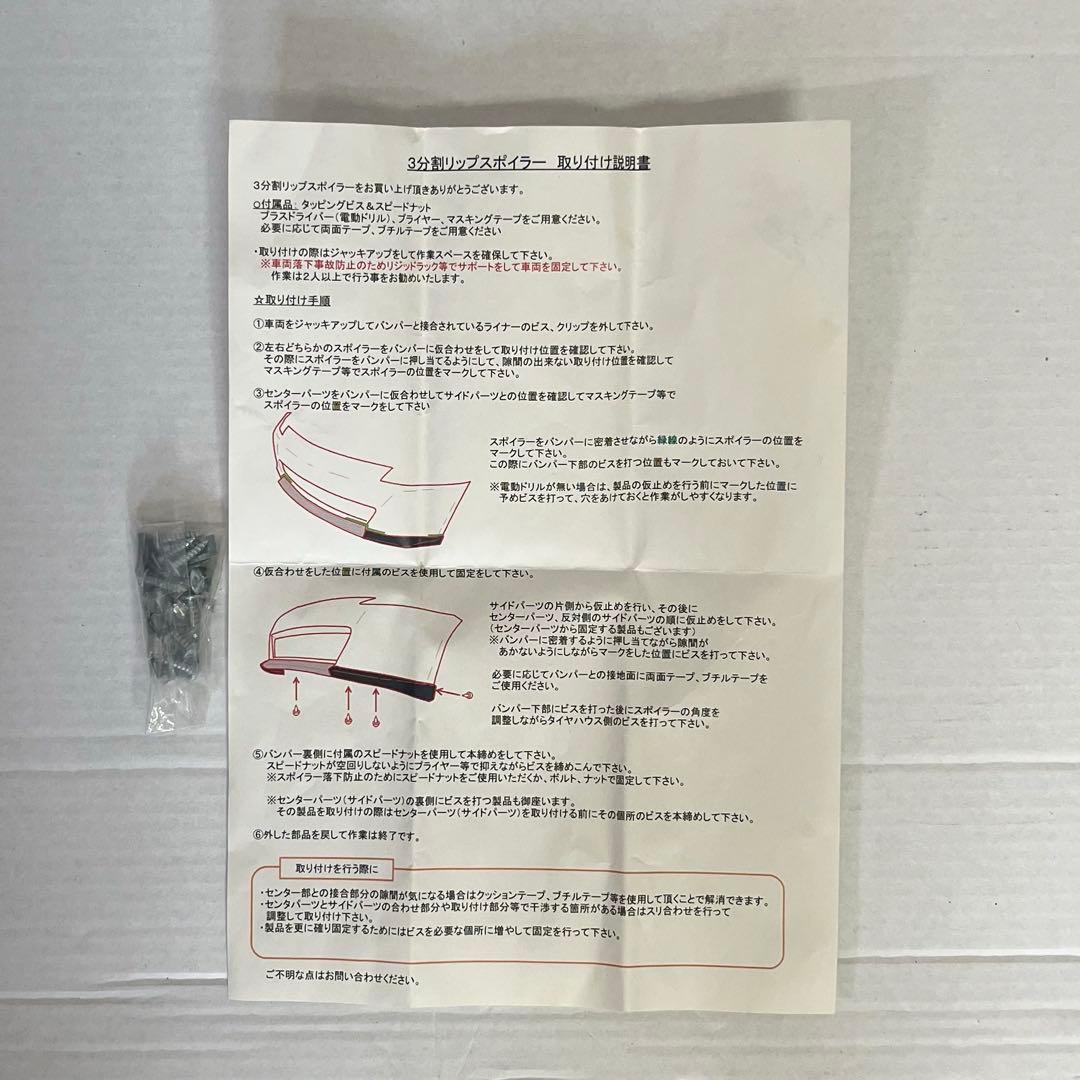 3分割リップスポイラー 取り付け説明書
3分割リップスポイラーをお買い上げ頂きありがとうございます。
○付属品：タッピングビス＆スピードナット
プラスドライバー（電動ドリル）、プライヤー、マスキングテープをご用意ください。
必要に応じて両面テープ、ブチルテープをご用意ください
・取り付けの際はジャッキアップをして作業スペースを確保して下さい。
※車両落下事故防止のためリジッドラック等でサポートをして車両を固定して下さい。
作業は2人以上で行う事をお勧めいたします。
☆取り付け手順
①車両をジャッキアップしてバンパーと接合されているライナーのビス、クリップを外して下さい。
②左右どちらかのスポイラーをバンパーに仮合わせをして取り付け位置を確認して下さい。
その際にスポイラーをバンパーに押し当てるようにして、隙間の出来ない取り付け位置を確認して
マスキングテープ等でスポイラーの位置をマークして下さい。
③センターパーツをバンパーに仮合わせしてサイドパーツとの位置を確認してマスキングテープ等で
スポイラーの位置をマークをして下さい
スポイラーをバンパーに密着させながら緑線のようにスポイラーの位置を
マークして下さい。
この際にバンパー下部のビスを打つ位置もマークしておいて下さい。
※電動ドリルが無い場合は、製品の仮止めを行う前にマークした位置に
予めビスを打って、穴をあけておくと作業がしやすくなります。
④仮合わせをした位置に付属のビスを使用して固定をして下さい。
サイドパーツの片側から仮止めを行い、その後に
センターパーツ、反対側のサイドパーツの順に仮止めをして下さい。
（センターパーツから固定する製品もございます）
※バンパーに密着するように押し当てながら隙間が
あかないようにしながらマークをした位置にビスを打って下さい。
必要に応じてバンパーとの接地面に両面テープ、ブチルテープを
ご使用ください。
バンパー下部にビスを打った後にスポイラーの角度を
調整しながらタイヤハウス側のビスを打って下さい。
⑤バンパー裏側に付属のスピードナットを使用して本締めをして下さい。
スピードナットが空回りしないようにプライヤー等で抑えながらビスを締めこんで下さい。
※スポイラー落下防止のためにスピードナットをご使用いただくか、ボルト、ナットで固定して下さい。
※センターパーツ（サイドパーツ）の裏側にビスを打つ製品も御座います。
その製品を取り付けの際はセンターパーツ（サイドパーツ）を取り付ける前にその個所のビスを本締めして下さい。
⑥外した部品を戻して作業は終了です。
取り付けを行う際に
・センター部との接合部分の隙間が気になる場合はクッションテープ、ブチルテープ等を使用して頂くことで解消できます。
・センタパーツとサイドパーツの合わせ部分や取り付け部分等で干渉する箇所がある場合はスリ合わせを行って
調整して取り付け下さい。
・製品を更に確り固定するためにはビスを必要な個所に増やして固定を行って下さい。
ご不明な点はお問い合わせください。